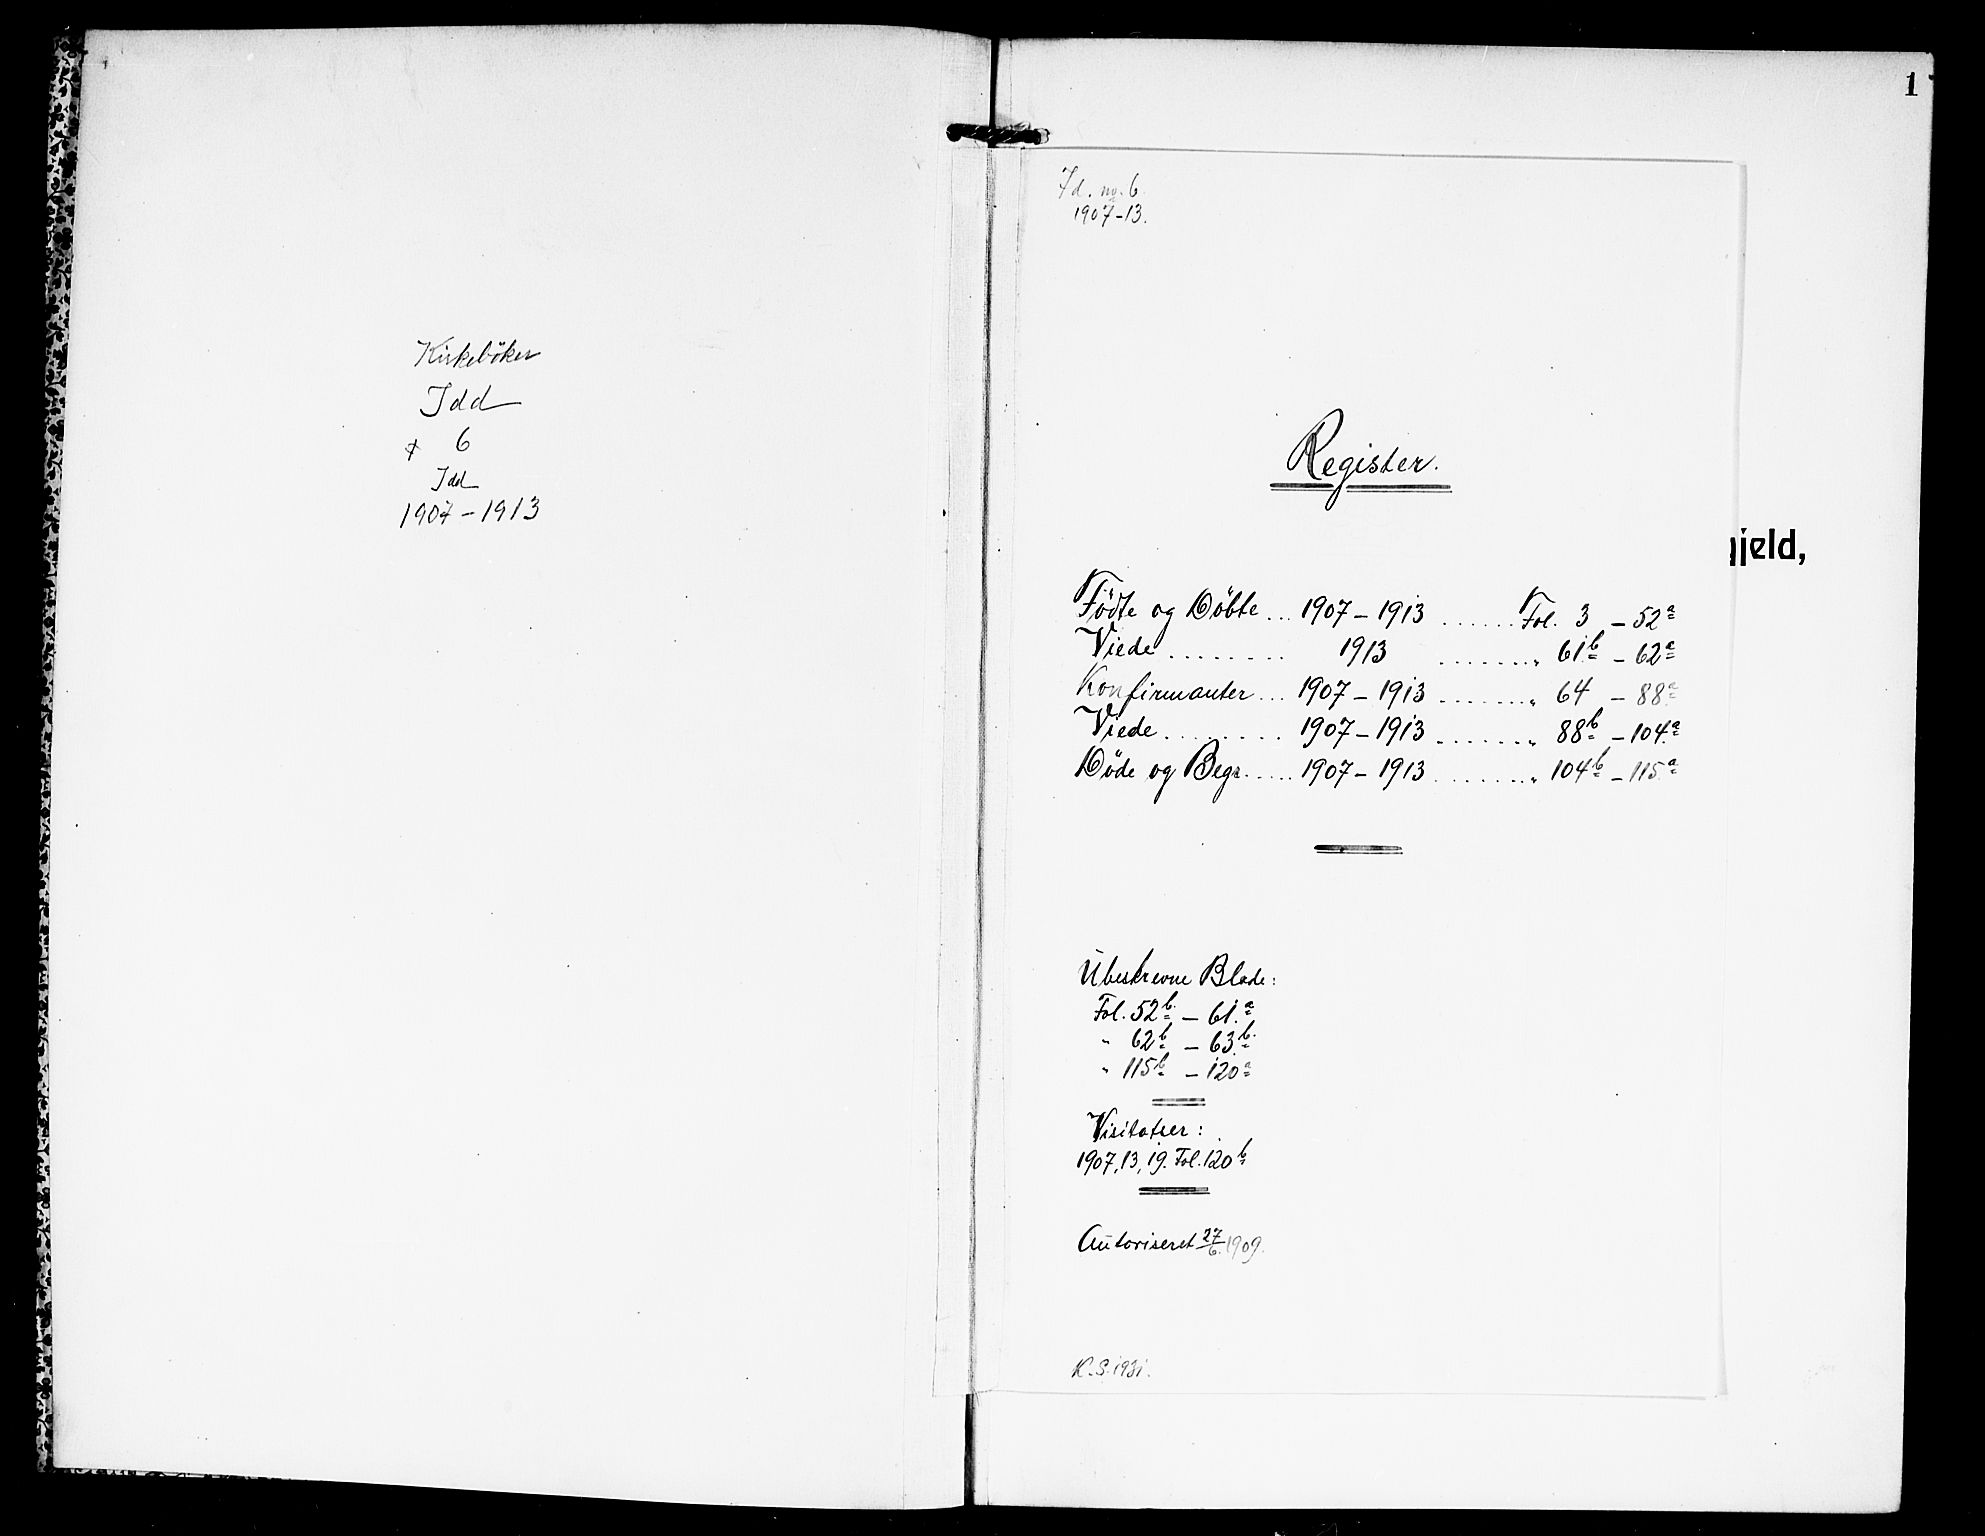 Kirkeböker
Idd
+ 6
Idd
1907-1913
1
Id. no. 6.
1907-13.
Register.
gjeld,
Födte og Döbte ... 1907-1913 ...... Fol. 3 - 52a
Viede ........ 1913 ....... " 61b - 62a
Konfirmanter ... 1907-1913 ....... " 64 - 88a
Viede ........ 1907-1913 ....... " 88b - 104a
Döde og Begr. .... 1907-1913 ....... " 104b - 115a
Ubeskrevne Blade:
Fol. 52b - 61a
" 62b - 63b
" 115b - 120a
Visitatser:
1907, 13, 19. Fol. 120b
Autoriseret 27/6. 1909.
K.S. 1931.